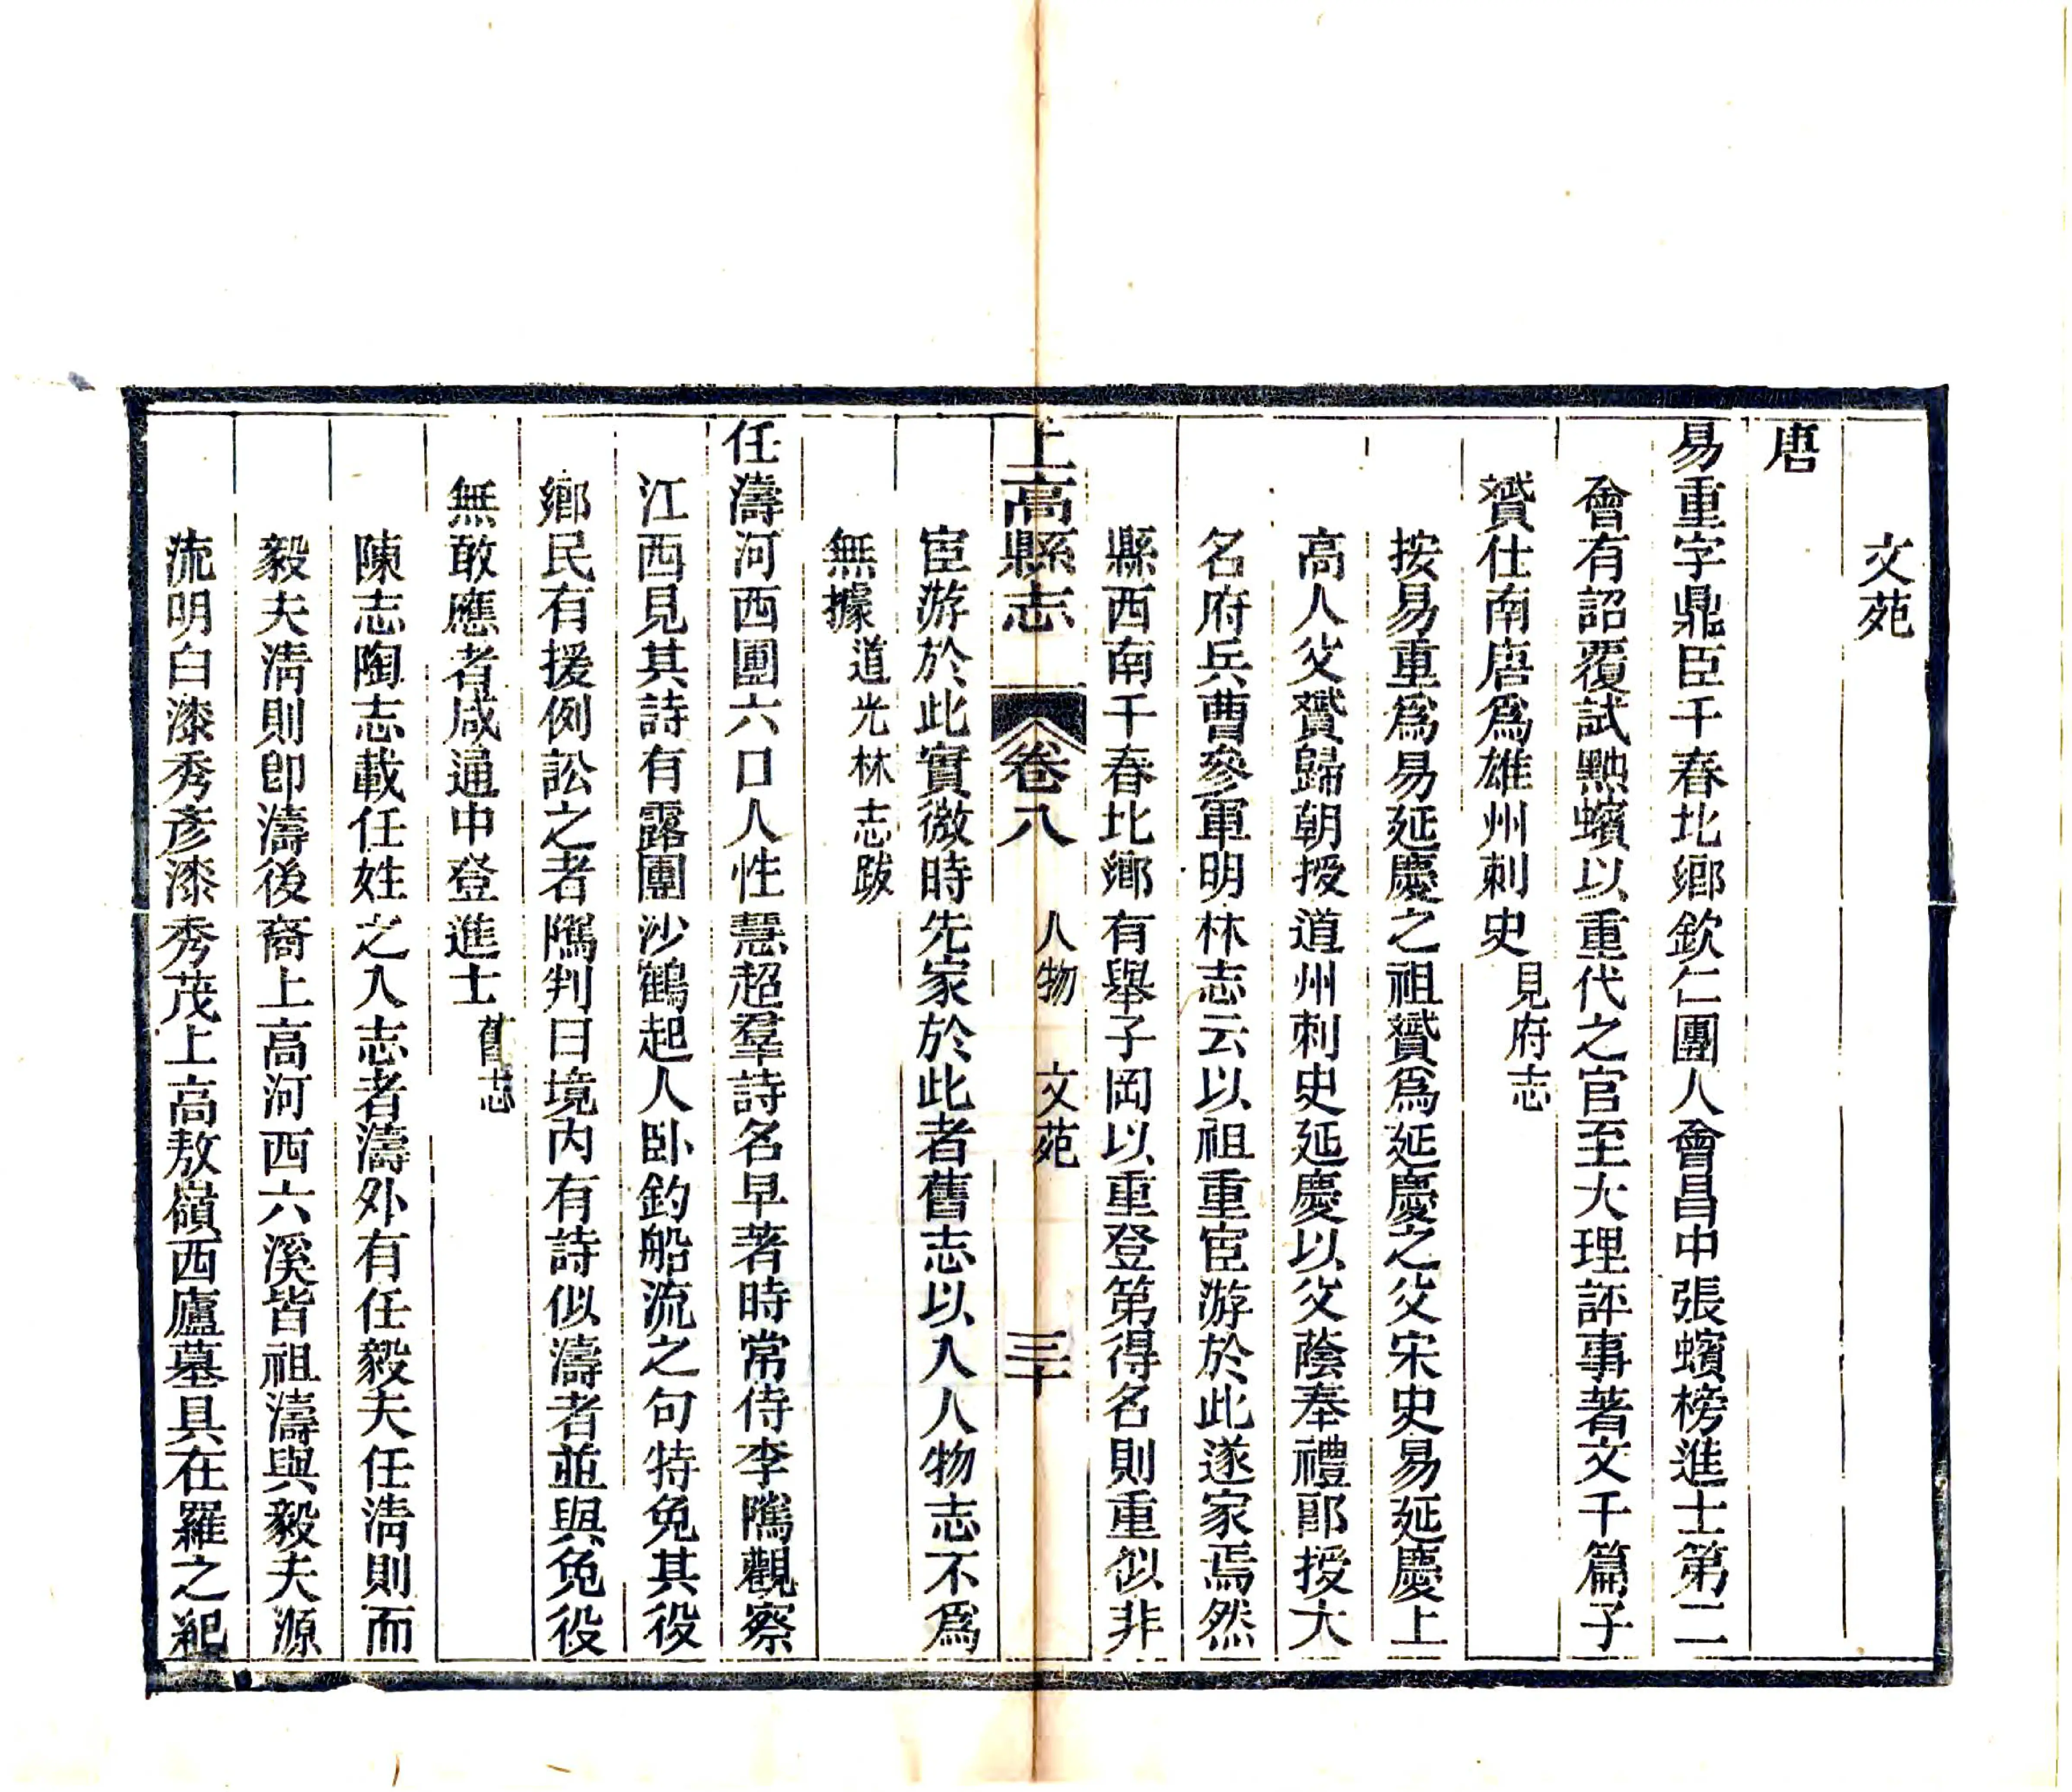 文苑
唐
易重字鼎臣千春北鄉欽仁團人會昌中張蠙榜進士第二
會有詔覆試黜蠙以重代之官至大理評事著文千篇子
贇仕南唐爲雄州刺史見府志
按易重爲易延慶之祖贇爲延慶之父宋史易延慶上
高人父贇歸朝授道州刺史延慶以父蔭奉禮郎授大
名府兵曹參軍明林志云以祖重宦游於此遂家焉然
縣西南千春北鄉有舉子岡以重登第得名則重似非
上高縣志 卷八 人物 文苑 三十
宦游於此實微時先家於此者舊志以入人物志不爲
無據道光林志跋
任濤河西團六口人性慧超羣詩名早著時常侍李隲觀察
江西見其詩有露團沙鶴起人臥釣船流之句特免其役
鄉民有援例訟之者隲判曰境內有詩似濤者並與免役
無敢應者咸通中登進士舊志
陳志陶志載任姓之入志者濤外有任毅夫任淸則而
毅夫淸則卽濤後裔上高河西六溪皆祖濤與毅夫源
流明白漆秀彥漆秀茂上高敖嶺西廬墓具在羅之祀